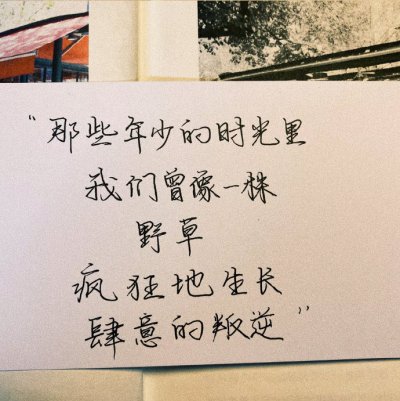 “那些年少的时光里
我们曾像一株
野草
疯狂地生长
肆意的叛逆”